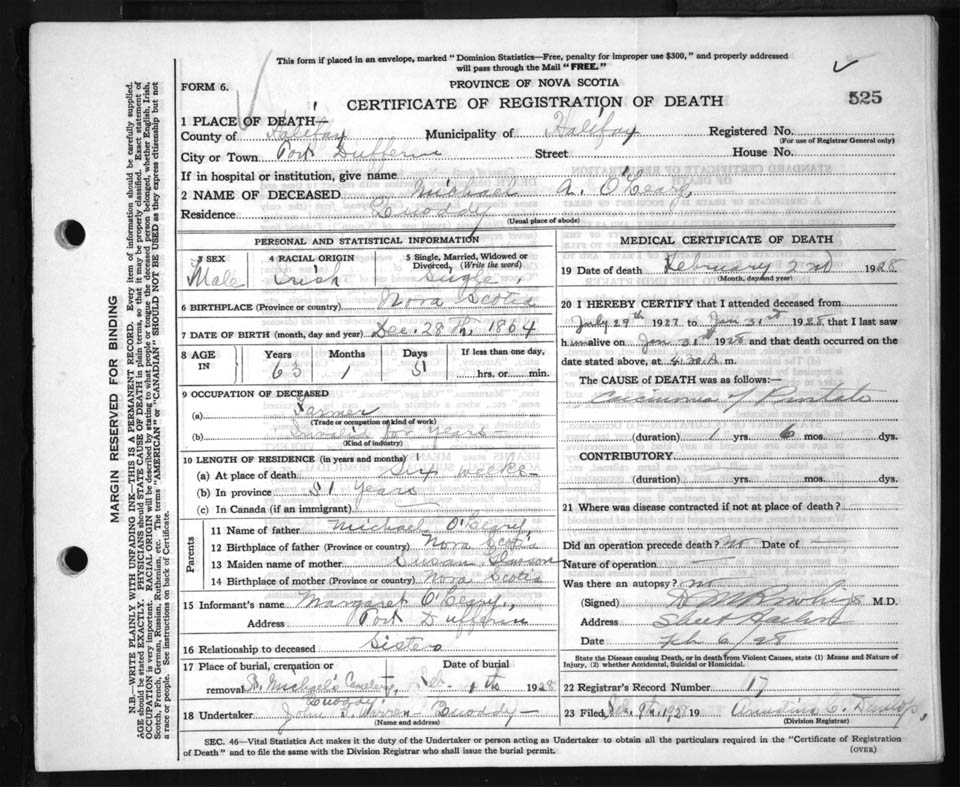 This form if placed in an envelope, marked "Dominion Statistics—Free, penalty for improper use $300," and properly addressed
will pass through the Mail "FREE."
FORM 6.
PROVINCE OF NOVA SCOTIA
CERTIFICATE OF REGISTRATION OF DEATH
525
1 PLACE OF DEATH—
County of Halifax Municipality of Halifax Registered No.
(For use of Registrar General only)
City or Town Port Dufferin Street House No.
If in hospital or institution, give name
2 NAME OF DECEASED Michael A. O'Leary,
Residence Quoddy
(Usual place of abode)
PERSONAL AND STATISTICAL INFORMATION
3 SEX 4 RACIAL ORIGIN 5 Single, Married, Widowed or
Divorced, (Write the word)
Male Irish Single.
6 BIRTHPLACE (Province or country) Nova Scotia
7 DATE OF BIRTH (month, day and year) Dec. 28th, 1864
8 AGE IN Years Months Days If less than one day,
63 1 5 hrs. or min.
9 OCCUPATION OF DECEASED
(a) Farmer
(Trade or occupation or kind of work)
(b) Invalid for years
(Kind of industry)
10 LENGTH OF RESIDENCE (in years and months)
(a) At place of death Six weeks
(b) In province 51 Years
(c) In Canada (if an immigrant)
Parents
11 Name of father Michael O'Leary,
12 Birthplace of father (Province or country) Nova Scotia
13 Maiden name of mother Susan
14 Birthplace of mother (Province or country) Nova Scotia
15 Informant's name Margaret O'Leary,
Address Port Dufferin
16 Relationship to deceased Sister
17 Place of burial, cremation or Date of burial
removal St. Michael's Cemetery, Feb. 1928
Quoddy.
18 Undertaker John Warren Quoddy
(Name and address)
MEDICAL CERTIFICATE OF DEATH
19 Date of death February 2nd 1928
(Month, day and year)
20 I HEREBY CERTIFY that I attended deceased from
July 29th 1927 to Jan 31st 1928 that I last saw
him alive on Jan 31st 1928 and that death occurred on the
date stated above, at m.
The CAUSE OF DEATH was as follows:—
Carcinoma of Prostate
(duration) 1 yrs. 6 mos. dys.
CONTRIBUTORY
(duration) yrs. mos. dys.
21 Where was disease contracted if not at place of death?
Did an operation precede death? no Date of —
Nature of operation
Was there an autopsy? no
(Signed) M.D.
Address Sheet Harbor
Date Feb 6/28
State the Disease causing Death, or in death from Violent Causes, state (1) Means and Nature of
Injury, (2) whether Accidental, Suicidal or Homicidal.
22 Registrar's Record Number 17
23 Filed Feb. 9th, 1928 19 Christina C. Dunlop,
(Division Registrar)
SEC. 46—Vital Statistics Act makes it the duty of the Undertaker or person acting as Undertaker to obtain all the particulars required in the "Certificate of Registration
of Death" and to file the same with the Division Registrar who shall issue the burial permit.
(OVER)
MARGIN RESERVED FOR BINDING
N.B.—WRITE PLAINLY WITH UNFADING INK—THIS IS A PERMANENT RECORD. Every item of information should be carefully supplied.
AGE should be stated EXACTLY. PHYSICIANS should STATE CAUSE OF DEATH in plain terms, so that it may be properly classified. Exact statement of
OCCUPATION is very important. RACIAL ORIGIN will be described by stating to what people or tongue the deceased person belonged, whether English, Irish,
Scotch, French, German, Russian, Ruthenian, etc. The terms "AMERICAN" or "CANADIAN" SHOULD NOT BE USED as they express citizenship but not
a race or people. See instructions on back of Certificate.